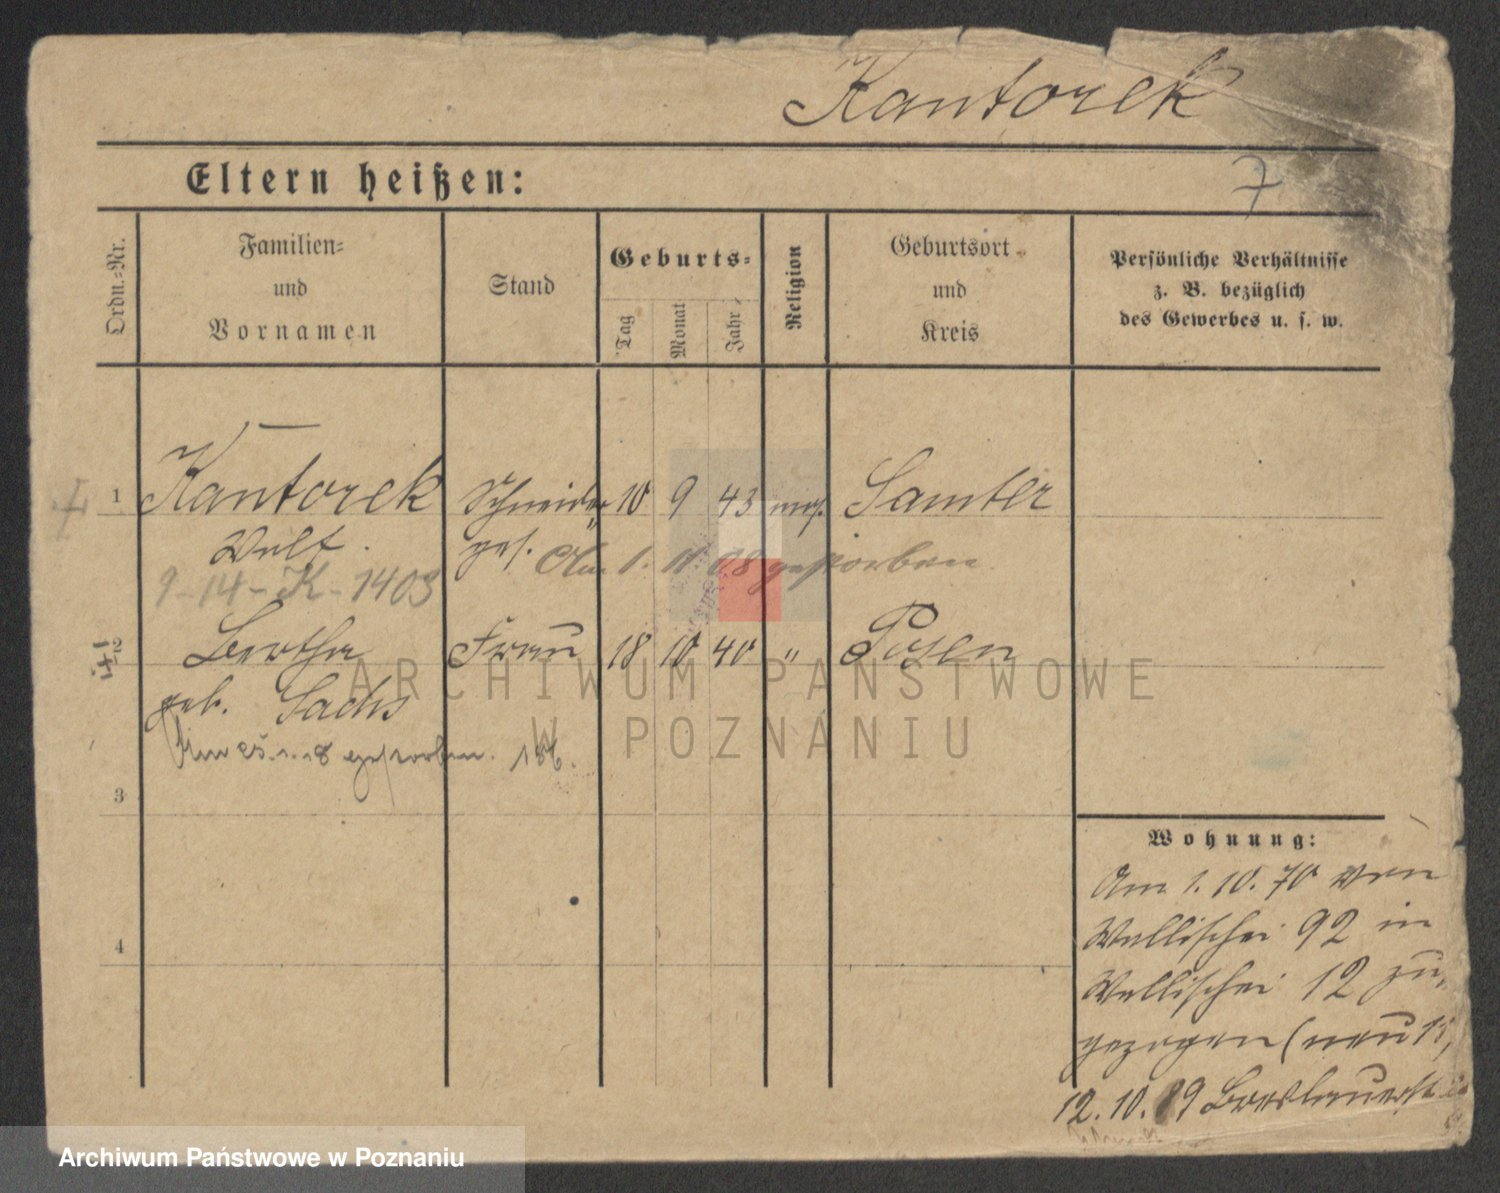 Kantorek
Eltern heißen:
7
Ordn.=Nr.
Familien=
und
Vornamen
Stand
Geburts=
Tag
Monat
Jahr
Religion
Geburtsort
und
Kreis
Persönliche Verhältnisse
z. B. bezüglich
des Gewerbes u. s. w.
1 Kantorek Schneider 10 9 43 mos. Samter
ges. Am 1. 11. 08 gestorben
9-14-K-1403
2 Bertha Frau 18 10 40 " Posen
geb. Sachs
gestorben.
3
4
Wohnung:
Am 1. 10. 70 von
Wallischei 92 in
Wallischei 12 zu,
gezogen (neu
12. 10. 89 Breslauerst
ARCHIWUM PAŃSTWOWE
W POZNANIU
Archiwum Państwowe w Poznaniu